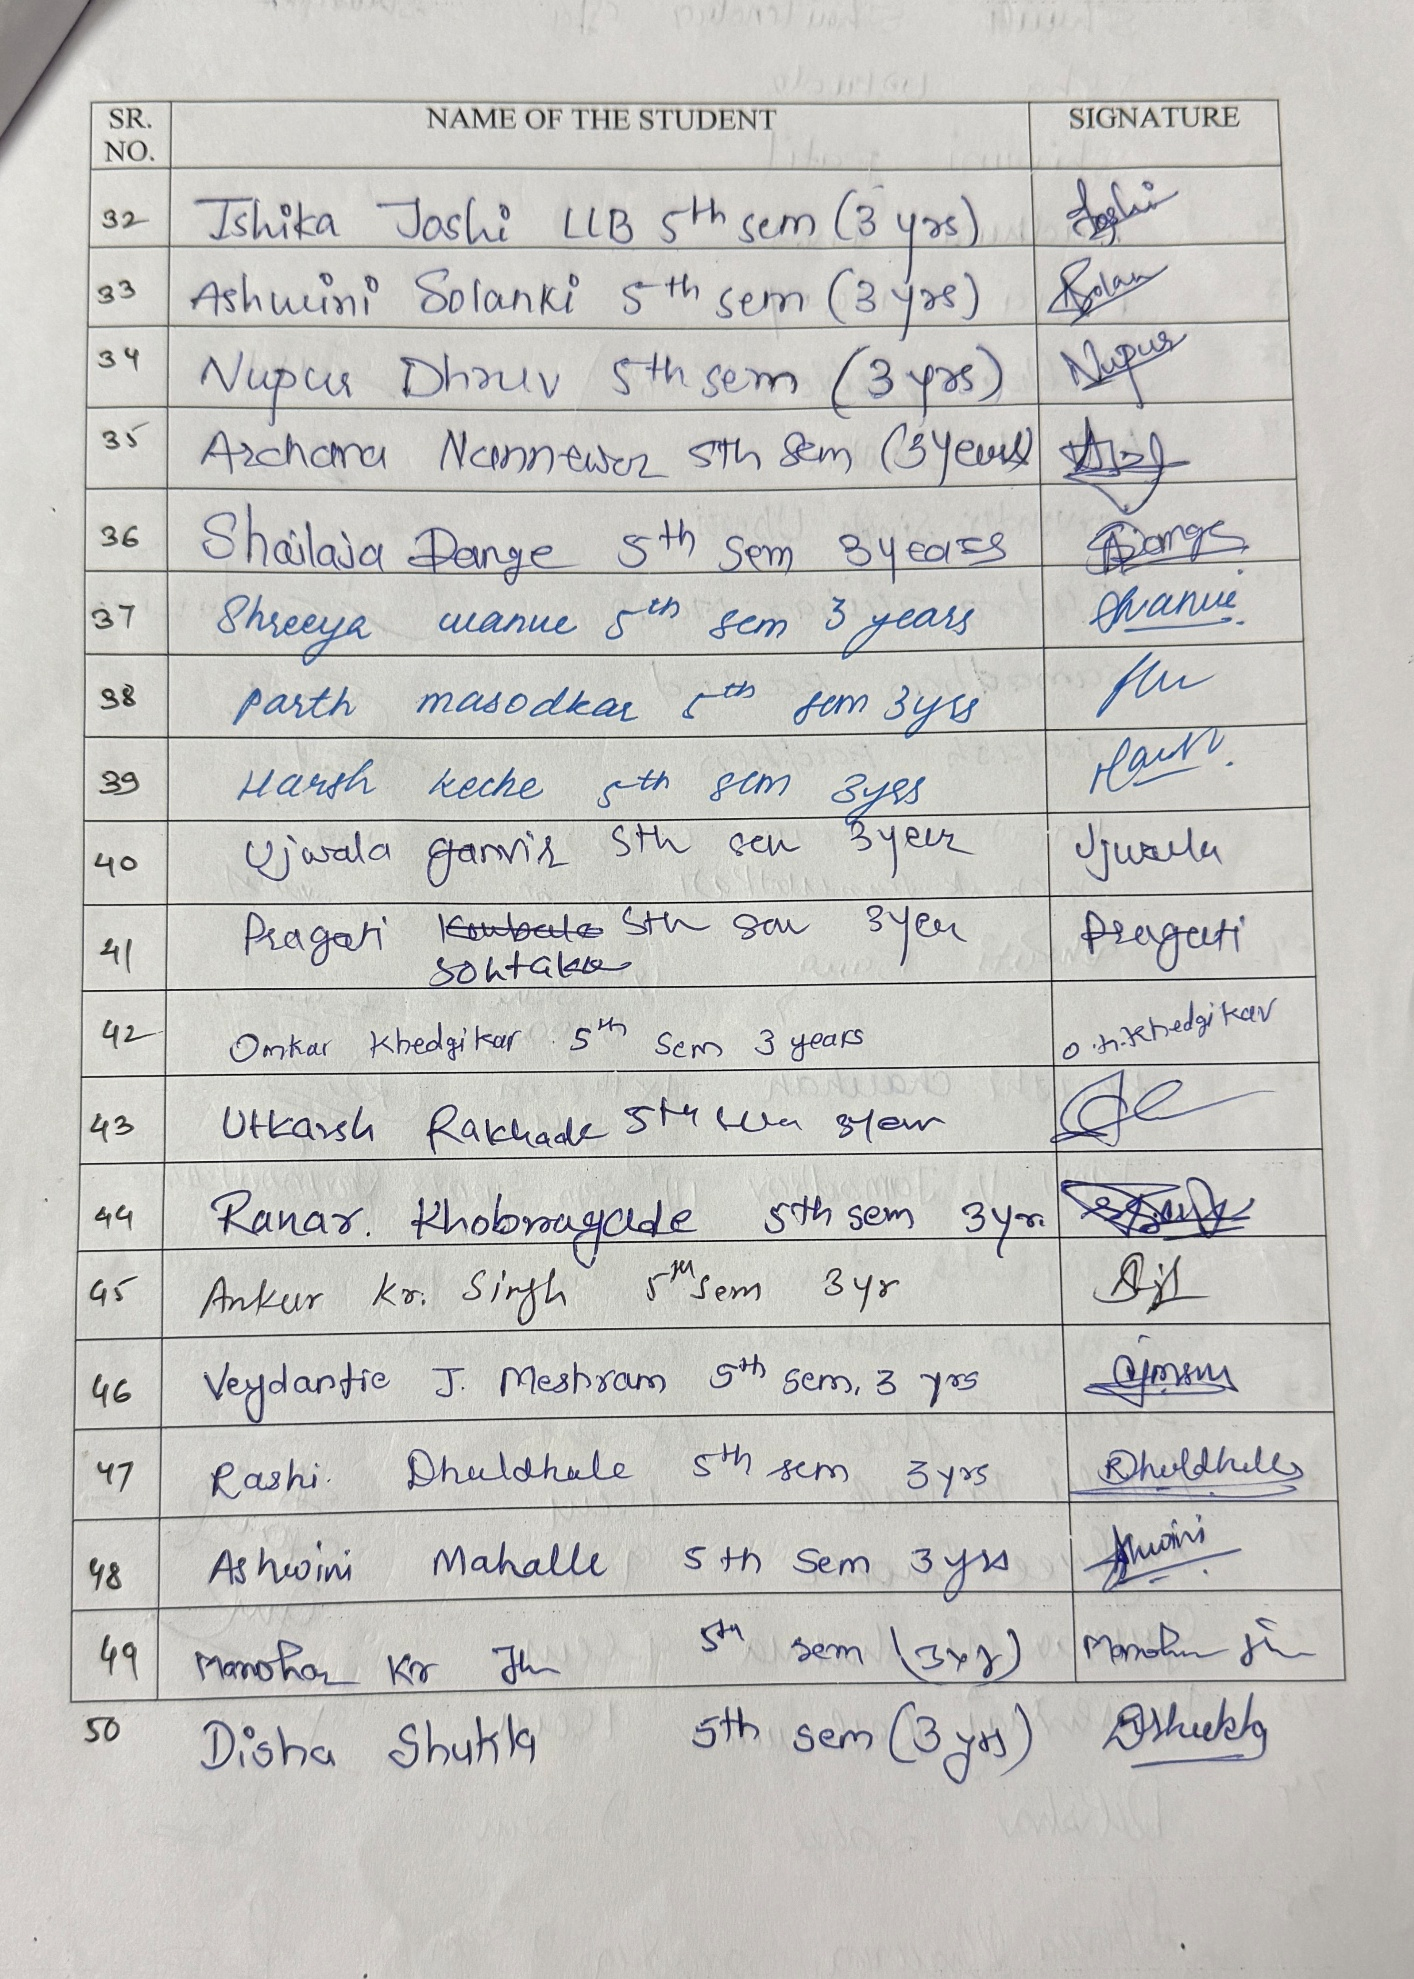 SR. NO. NAME OF THE STUDENT SIGNATURE
32 Ishika Joshi LLB 5th sem (3 yrs) Joshi
33 Ashwini Solanki 5th sem (3 yrs) Solan
34 Nupur Dhruv 5th sem (3 yrs) Nupur
35 Archana Nannewar 5th Sem (3 years)
36 Shailaja Dange 5th Sem 3 years Dange
37 Shreeya wanve 5th sem 3 years
38 Parth masodkar 5th sem 3 yrs
39 Harsh keche 5th sem 3yrs Harsh
40 Ujwala ganvir 5th sem 3 year Ujwala
41 Pragati 5th sem 3 year Pragati
sontakke
42 Omkar Khedgikar 5th Sem 3 years O.H.Khedgikar
43 Utkarsh Rakhade 5th sem 3year
44 Ranar. Khobragade 5th sem 3yr.
45 Ankur Kr. Singh 5th sem 3 yr
46 Veydantie J. Meshram 5th sem, 3 yrs
47 Rashi. Dhuldhule 5th sem 3 yrs RDhuldhule
48 Ashwini Mahalle 5th Sem 3 yrs Ashwini
49 Manohar Kr Jha 5th sem (3yr) Manohar Jha
50 Disha Shukla 5th sem (3 yrs) DShukla